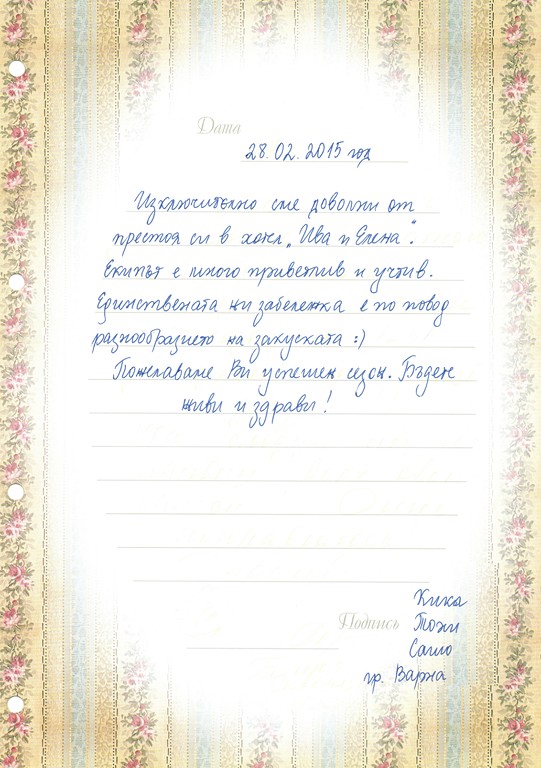 Дата
28.02.2015 год
Изключително сме доволни от
престоя си в хотел „Ива и Елена“.
Екипът е много приветлив и учтив.
Единствената ни забележка е по повод
разнообразието на закуската :)
Пожелаваме Ви успешен сезон. Бъдете
живи и здрави!
Кика
Подпись Тони
Сашо
гр. Варна